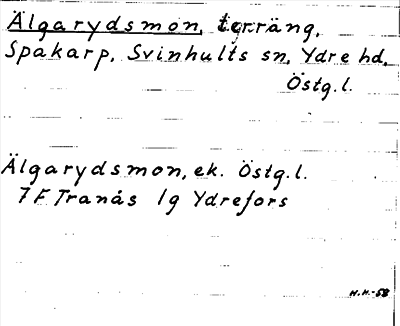 Älgarydsmon, terräng,
Spakarp, Svinhults sn, Ydre hd,
Östg.l.
Älgarydsmon, ek. Östg.l.
7F Tranås 1g Ydrefors
H.H.-58